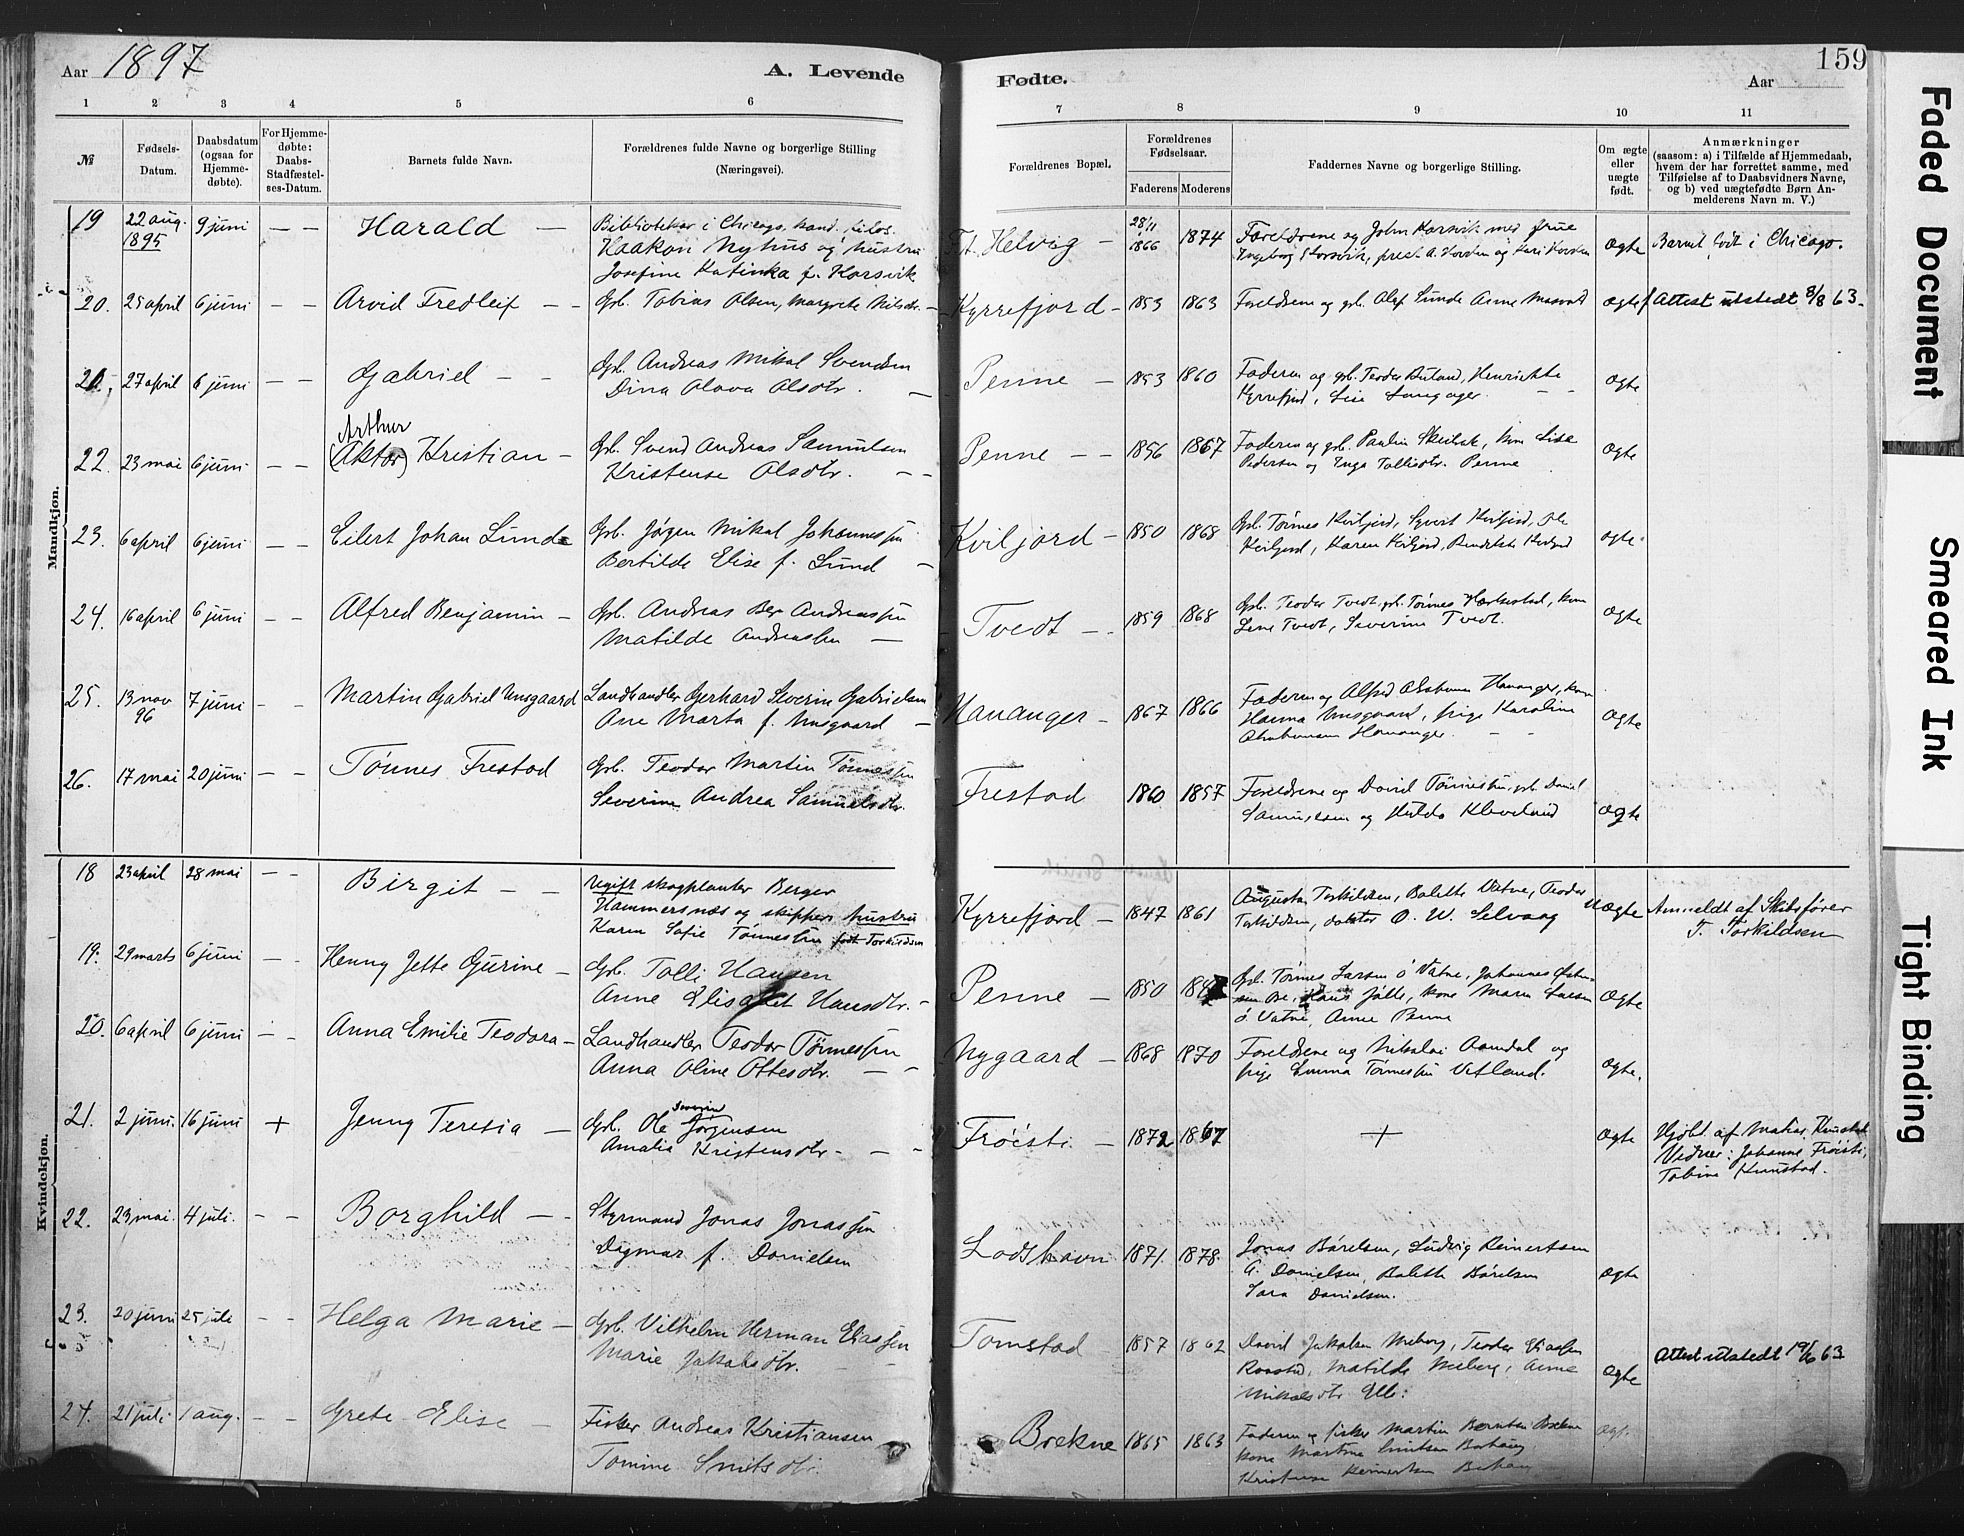 Aar 1897 A. Levende
Fødte. Aar
159
1 2 3 4 5 6
7 8 9 10 11
№
Fødsels-
Datum.
Daabsdatum
(ogsaa for
Hjemme-
døbte).
For Hjemme-
døbte:
Daabs-
Stadfæstel-
ses-Datum.
Barnets fulde Navn.
Forældrenes fulde Navne og borgerlige Stilling
(Næringsvei).
Forældrenes Bopæl.
Forældrenes
Fødselsaar.
Faderens Moderens
Faddernes Navne og borgerlige Stilling.
Om ægte
eller
uægte
født.
Anmærkninger
(saasom: a) i Tilfælde af Hjemmedaab,
hvem der har forrettet samme, med
Tilføielse af to Daabsvidners Navne,
og b) ved uægtefødte Børn An-
melderens Navn m. V.)
Mandkjøn.
19 22 aug. 1895 9 juni — — Harald —
Bibliotekar i Chicago, kand. filos.
Haakon Nyhus og hustru
Josefine Katinka f. Korsvik
Helvig — 28/11 1866 1874
Forældrene og John Korsvik med frue
Ingeborg Korsvik,
ægte Barnet født i Chicago.
20. 25 april 6 juni — — Arvid Fredleif — —
Gbr. Tobias Olsen, Margrete Nilsdtr. —
Kyrrefjord — 1853 1863
Foreldrene og gbr. Olaf Lunde Anne
ægte Attest utstedt 8/8 63.
21. 27 april 6 juni — — Gabriel — —
Gbr. Andreas Mikal Svendsen
Dina Olava Olsdtr. —
Penne — 1853 1860
Faderen og gbr. Teodor Henriette
Kyrrefjord, Lise
ægte
22. 23 mai 6 juni — — Arthur
(Aktor) Kristian —
Gbr. Svend Andreas Samuelsen
Kristense Olsdtr. — —
Penne — — 1856 1867
Faderen og gbr. Paulin kone Lise
Pedersen og Inga Tollisdtr. Penne
ægte
23. 6 april 6 juni — — Eilert Johan Lunde
Gbr. Jørgen Mikal Johannessen
Bertilde Elise f. Lund —
Kviljord — 1850 1868
Gbr. Tønnes Kviljord, Syvert Kviljord, Ole
Kviljord, Karen Kviljord, Kviljord
ægte
24. 16 april 6 juni — — Alfred Benjamin —
Gbr. Andreas Ber Andreassen
Matilde Andreassen —
Tvedt — 1859 1868
Gbr. Teodor Tvedt, gbr. Tønnes kone
Lene Tvedt, Severine Tvedt.
ægte
25. 13 nov 96 7 juni — — Martin Gabriel Unsgaard
Landhandler Gerhard Severin Gabrielsen
Ane Marta f. Unsgaard —
Hananger — 1867 1866
Faderen og Alfred Abrahamsen Hananger, kone
Hanna Unsgaard, pige Karoline
Abrahamsen Hananger.
ægte
26. 17 mai 20 juni — — Tønnes Frestad
Gbr. Teodor Martin Tønnessen
Severine Andrea Samuelsdtr.
Frestad 1860 1857
Foreldrene og David Tønnessen, gbr. Daniel
Samuelsen og Hulda Kleveland
ægte
Kvindekjøn.
18 23 april 28 mai — — Birgit — —
Ugift skogplanter Berger
Hammersnæs og skippers hustru
Karen Sofie Tønnessen født Torkildsen
Kyrrefjord — 1847 1861
Augusta Torkildsen, Balette Vatne, Teodor
Torkildsen, doktor O. W. Selvaag
Uægte Anmeldt af Skibsfører
T. Torkildsen
19. 29 marts 6 juni — — Henny Jette Gurine —
Gbr. Tolli Hansen
Anne Elisabet Hansdtr. —
Penne — 1850
Gbr. Tønnes Larsen ø Vatne, Johannes
Hans Jølle, kone Maren Larsen
ø. Vatne, Anne Penne
Ægte
20. 6 april 6 juni — — Anna Emilie Teodora —
Landhandler Teodor Tønnessen
Anna Oline Ottesdtr. — —
Nygaard — 1868 1870
Foreldrene og Nikolai Aamdal og
pige Emma Tønnessen Vetland.
Ægte.
21. 2 juni 16 juni + Jenny Teresia —
Gbr. Ole Severin Jørgensen
Amalia Kristensdtr. — —
Frøisti — 1872 1867 +
Ægte Hjdbt. af Matias Kunstad
Vidner: Johanne Frøisti,
Tobine Kunstad.
22. 23 mai. 4 juli. — — Borghild — —
Styrmand Jonas Jonassen
Dagmar f. Danielsen
Lodshavn 1871. 1878.
Jonas Børelsen, Ludvig Reinertsen
G. Danielsen, Balette Børelsen
Sara Danielsen.
Ægte
23. 20 juni 25 juli — — Helga Marie —
Gbr. Vilhelm Herman Eliassen
Marie Jakobsdtr.
Tomstad 1857 1862
David Jakobsen Meberg, Teodor Eliassen
Matilde Meberg, Anne
Mikalsdtr Elle.
Ægte Attest utstedt 19/6 63
24. 21 juli 1 aug. — — Grete Elise —
Fisker Andreas Kristiansen
Tomine
Brekne 1865 1863
Faderen og fisker Martin Berntsen Brekne
kone Martine
Reinertsen
Faded Document
Smeared Ink
Tight Binding